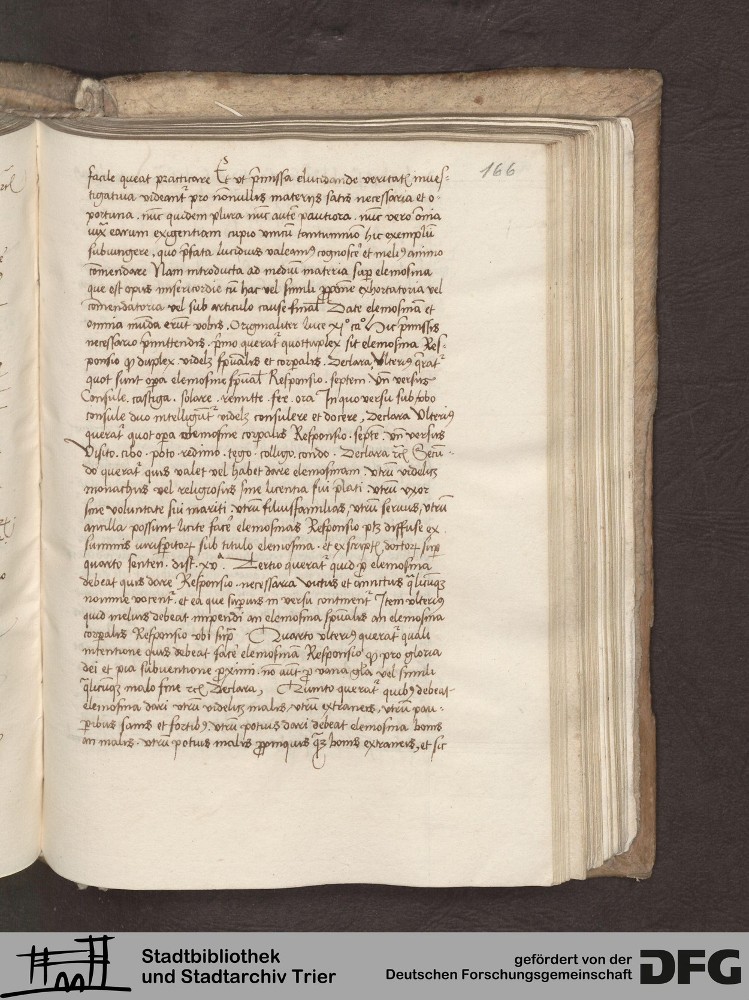 166
facile queat practicare Et ut p̄missa elucidande veritatꝭ inues-
tigatiua videant᷑ pro nōnullis materijs satis necessaria et o-
portuna . nūc quidem plura nūc autē pautiora . nūc vero oīnia
iuxͣ earum exigentiam cupio vnicū tantummō hic exemplū
subiungere, quo p̄fata lucidius valeamꝰ cognoscē et meliꝰ animo
cōmendare Nam introducta ad mediū materia suꝑ elemosina
que est opus misericordie cū hac vel simili ꝓpōne exhortatoria vel
cōmendatoria vel sub articulo cause finał Date elemosinā et
omnia mūda erūt vobis . Originaliter luce xjº caº Hic p̄missis
necessario p̄mittendis . p̄mo querat᷑ quottuplex sit elemosina Res-
ponsio ꝙ duplex videlꝫ sp̄ualis et corꝑalis . Declara, Vlteriꝰ q̄rat᷑
quot sunt oꝑa elemosine sp̄uał Responsio . septem Vn̄ versus
Consule . castiga . solare . remitte . fer . ora In quo versu sub vͤbo
consule duo intelligūt᷑ videlꝫ consulere et docere . Declara Vlteriꝰ
querat᷑ quot oꝑa elemosine corꝑalis Responsio . septē . Vn̄ versus
Visito . cibo . poto . redimo . tego . colligo . condo . Declara rcꝭ Secū-
do querat᷑ quis valet vel habet dare elemosinam . vtrū videlitꝫ
monachus vel religiosus sine licentia sui p̄lati . vtrū vxor
sine voluntate sui mariti . vtrū filiusfamilias, vtrū seruus, vtrū
ancilla possunt licite facē elemosinas Responsio ptꝫ diffuse ex
summis iurisꝑitoꝝ sub titulo elemosina . et ex scriptꝭ doctoꝝ suꝑ
quarto senten . dist . xv . Tertio querat᷑ quid ꝓ elemosina
debeat quis dare Responsio . necessaria victus et amictus q̄licūqꝫ
nomine vocent᷑ . et ea que suꝑius in versu continent᷑ Item vlteriꝰ
quid melius debeat impendi an elemosina sp̄ualis an elemosina
corꝑalis Responsio vbi suꝑ Quarto vlteriꝰ querat᷑ quali
intentione quis debeat facē elemosinā Responsio ꝙ pro gloria
dei et pia subuentione ꝓximi . nō aūt ꝓ vana gl̄a vel simili
q̄licūqꝫ malo fine rcꝭ Declara, Quinto querat᷑ quibꝰ debeat
elemosina dari vtrū videlitꝫ malis, vtrū extraneis, vtrū pau-
ꝑibus sanis et fortibꝰ, vtrū potius dari debeat elemosina bonis
an malis . vtrū potius malis ꝓpinquis q̄ꝫ bonis extraneis, et sic
Stadtbibliothek
und Stadtarchiv Trier
gefördert von der
Deutschen Forschungsgemeinschaft
DFG